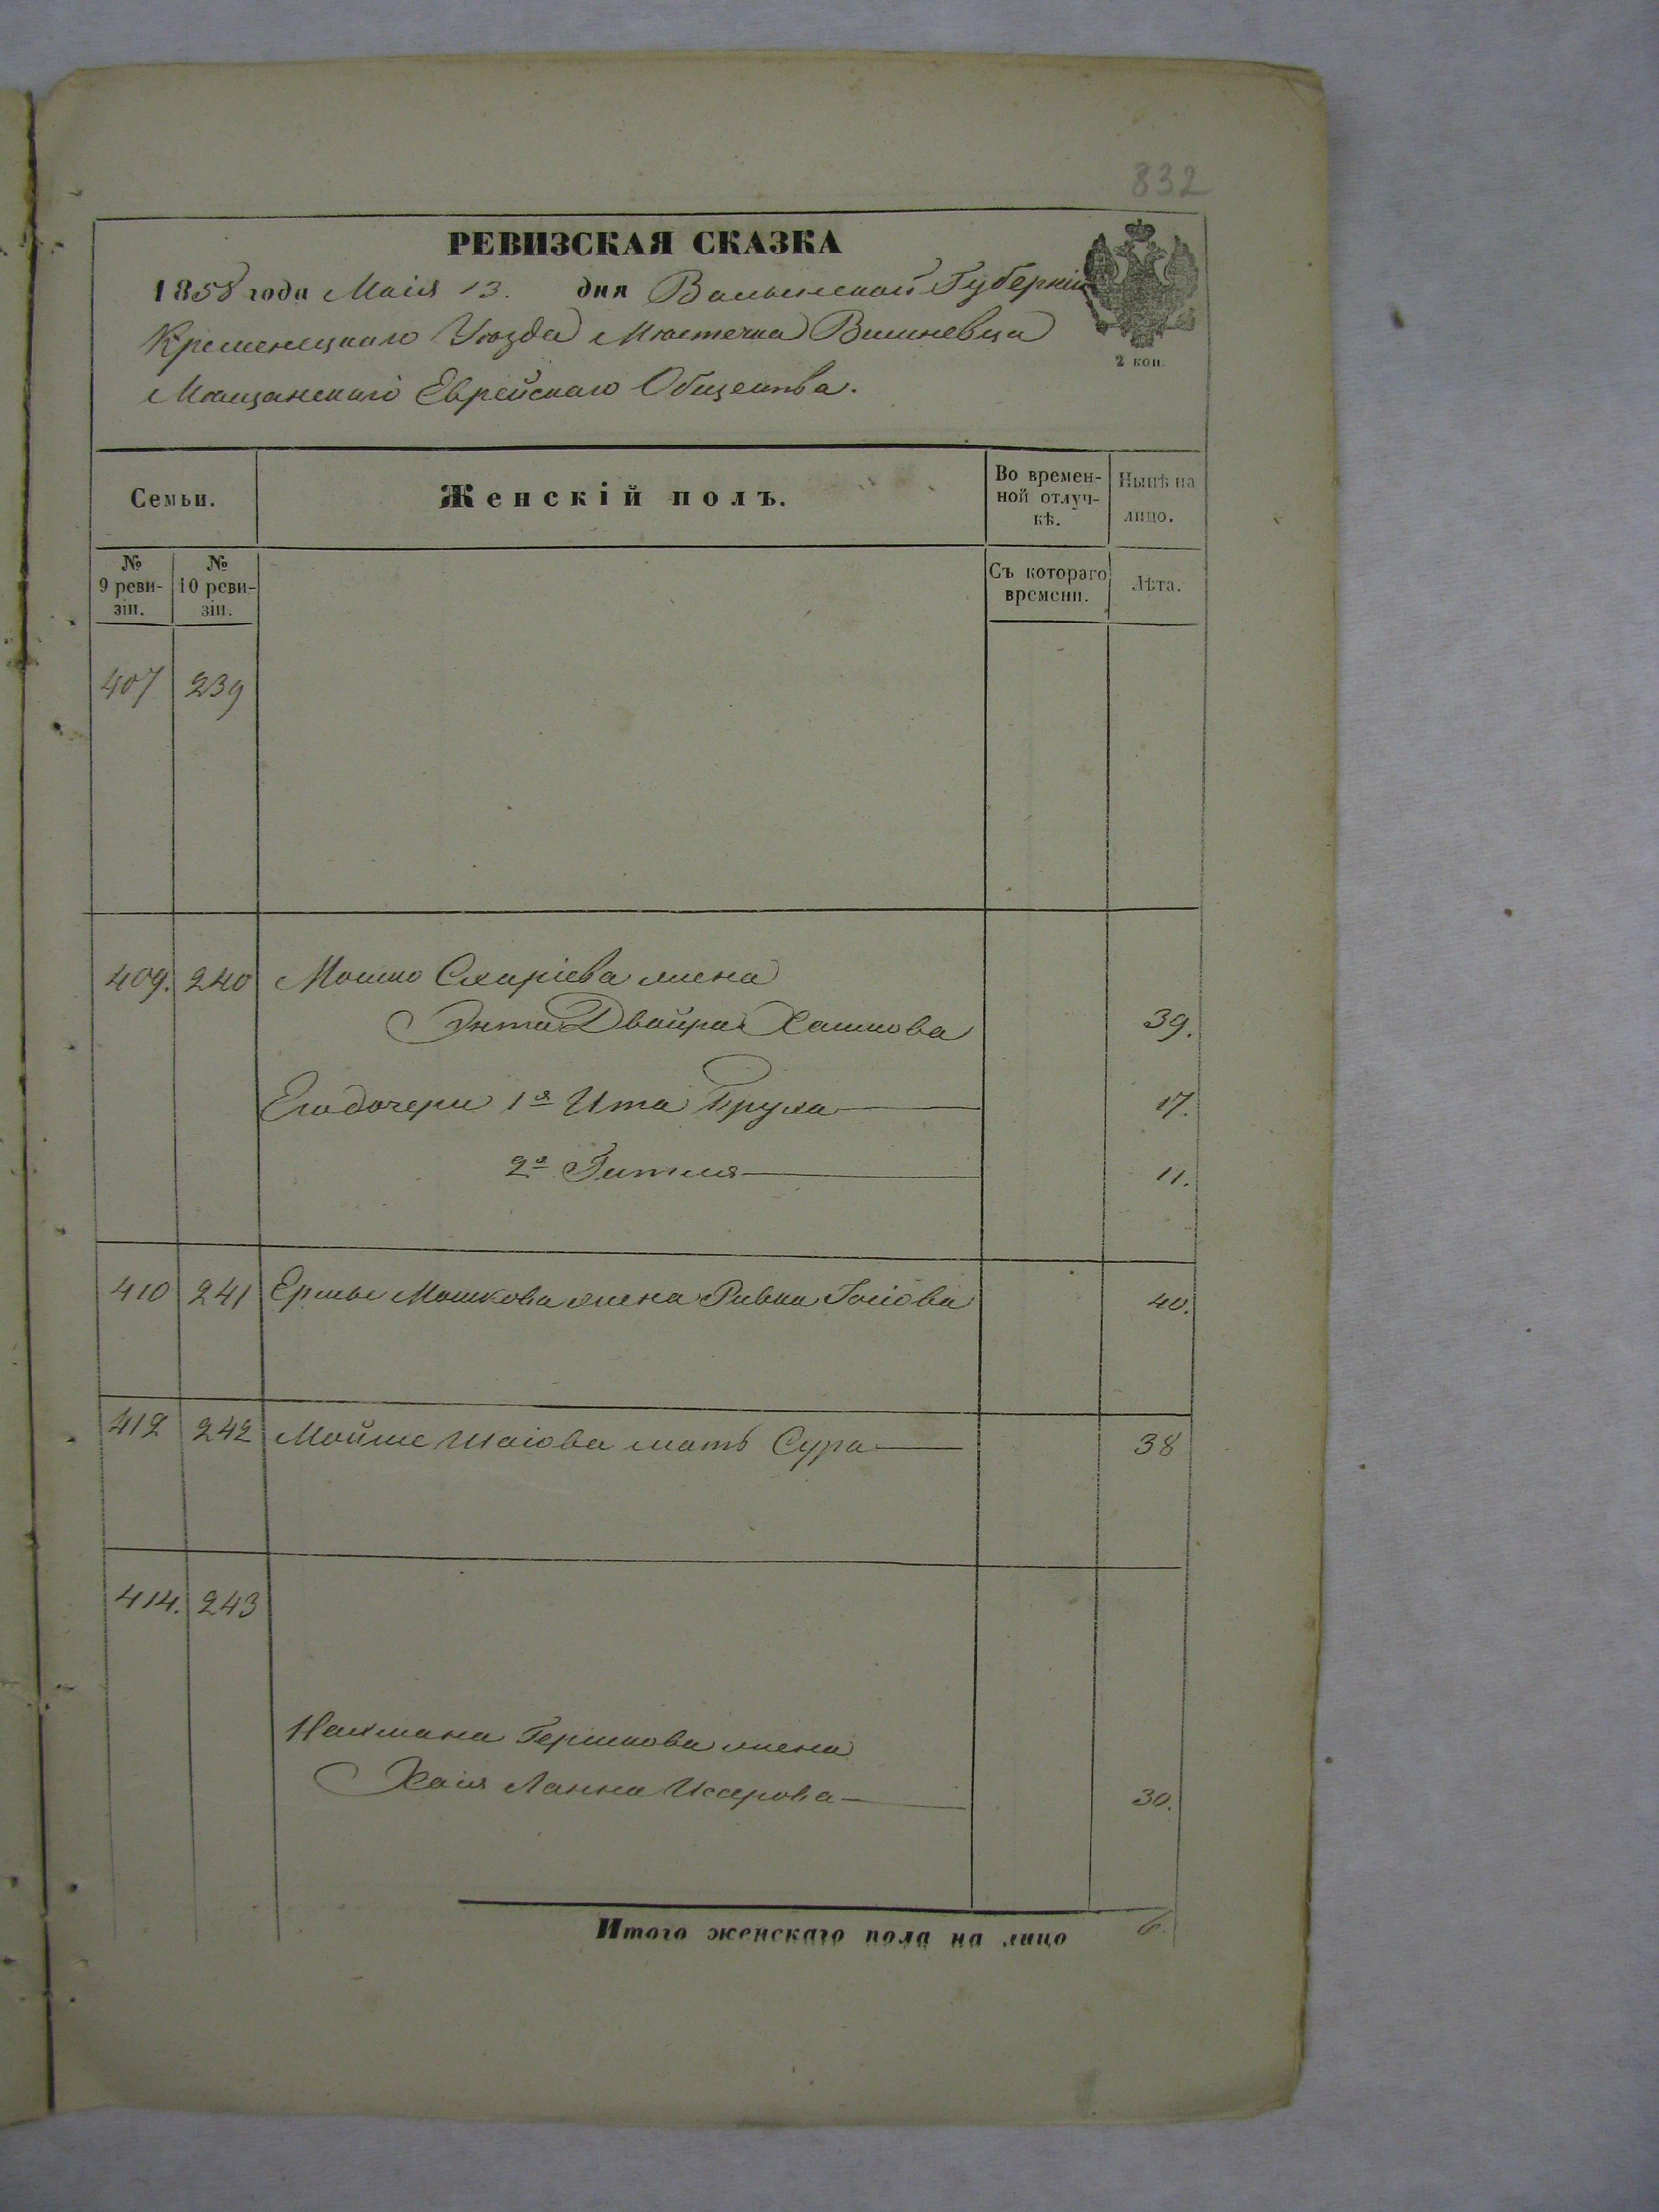 832
РЕВИЗСКАЯ СКАЗКА
1858 года Маія 13. дня Волынской Губерніи
Кременецкаго Уѣзда Мѣстечка Вишневца
Мѣщанскаго Еврейскаго Общества.
2 коп.
Семьи. Женскій полъ. Во времен-ной отлуч-кѣ. Нынѣ на лицо.
№ 9 реви-зіи. № 10 реви-зіи. Съ котораго времени. Лѣта.
407 239
409. 240 Мошко жена
Двойра Хаимова 39.
Его дочери 1я Ита Брука 17.
2я Гитля 11.
410 241 Ершы Мошкова жена Ривка Іосіова 40.
412 242 Мойше Шаіова мать Сура 38
414. 243
Нахмана Гершкова жена
Хаія 30.
Итого женскаго пола на лицо 6.